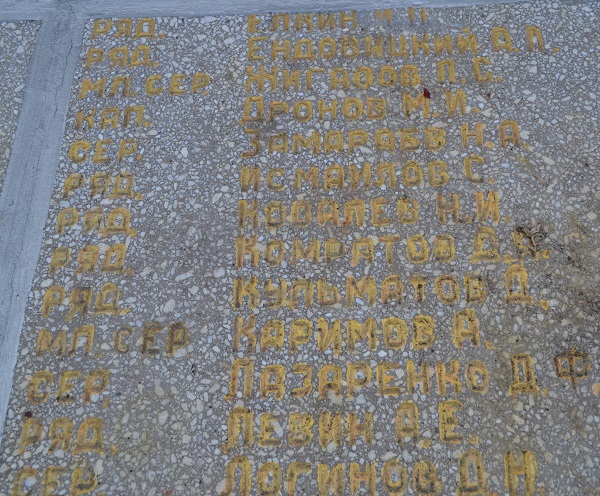 РЯД. ЕЛКИН И.
РЯД. ЕНДОВИЦКИЙ А.П.
МЛ. СЕР ЖИГАЛОВ П.С.
КАП. ДРОНОВ М.И.
СЕР. ЗАМАРАЕВ Н.А.
РЯД. ИСМАИЛОВ С.
РЯД. КОВАЛЕВ Н.И.
РЯД. КОМРАТОВ Д.
РЯД. КУЛЬМАТОВ Д.
МЛ. СЕР КАРИМОВ А.
СЕР. ЛАЗАРЕНКО Д.Ф
РЯД. ЛЕВИН А.Е.
СЕР. ЛОГИНОВ Д.Н.